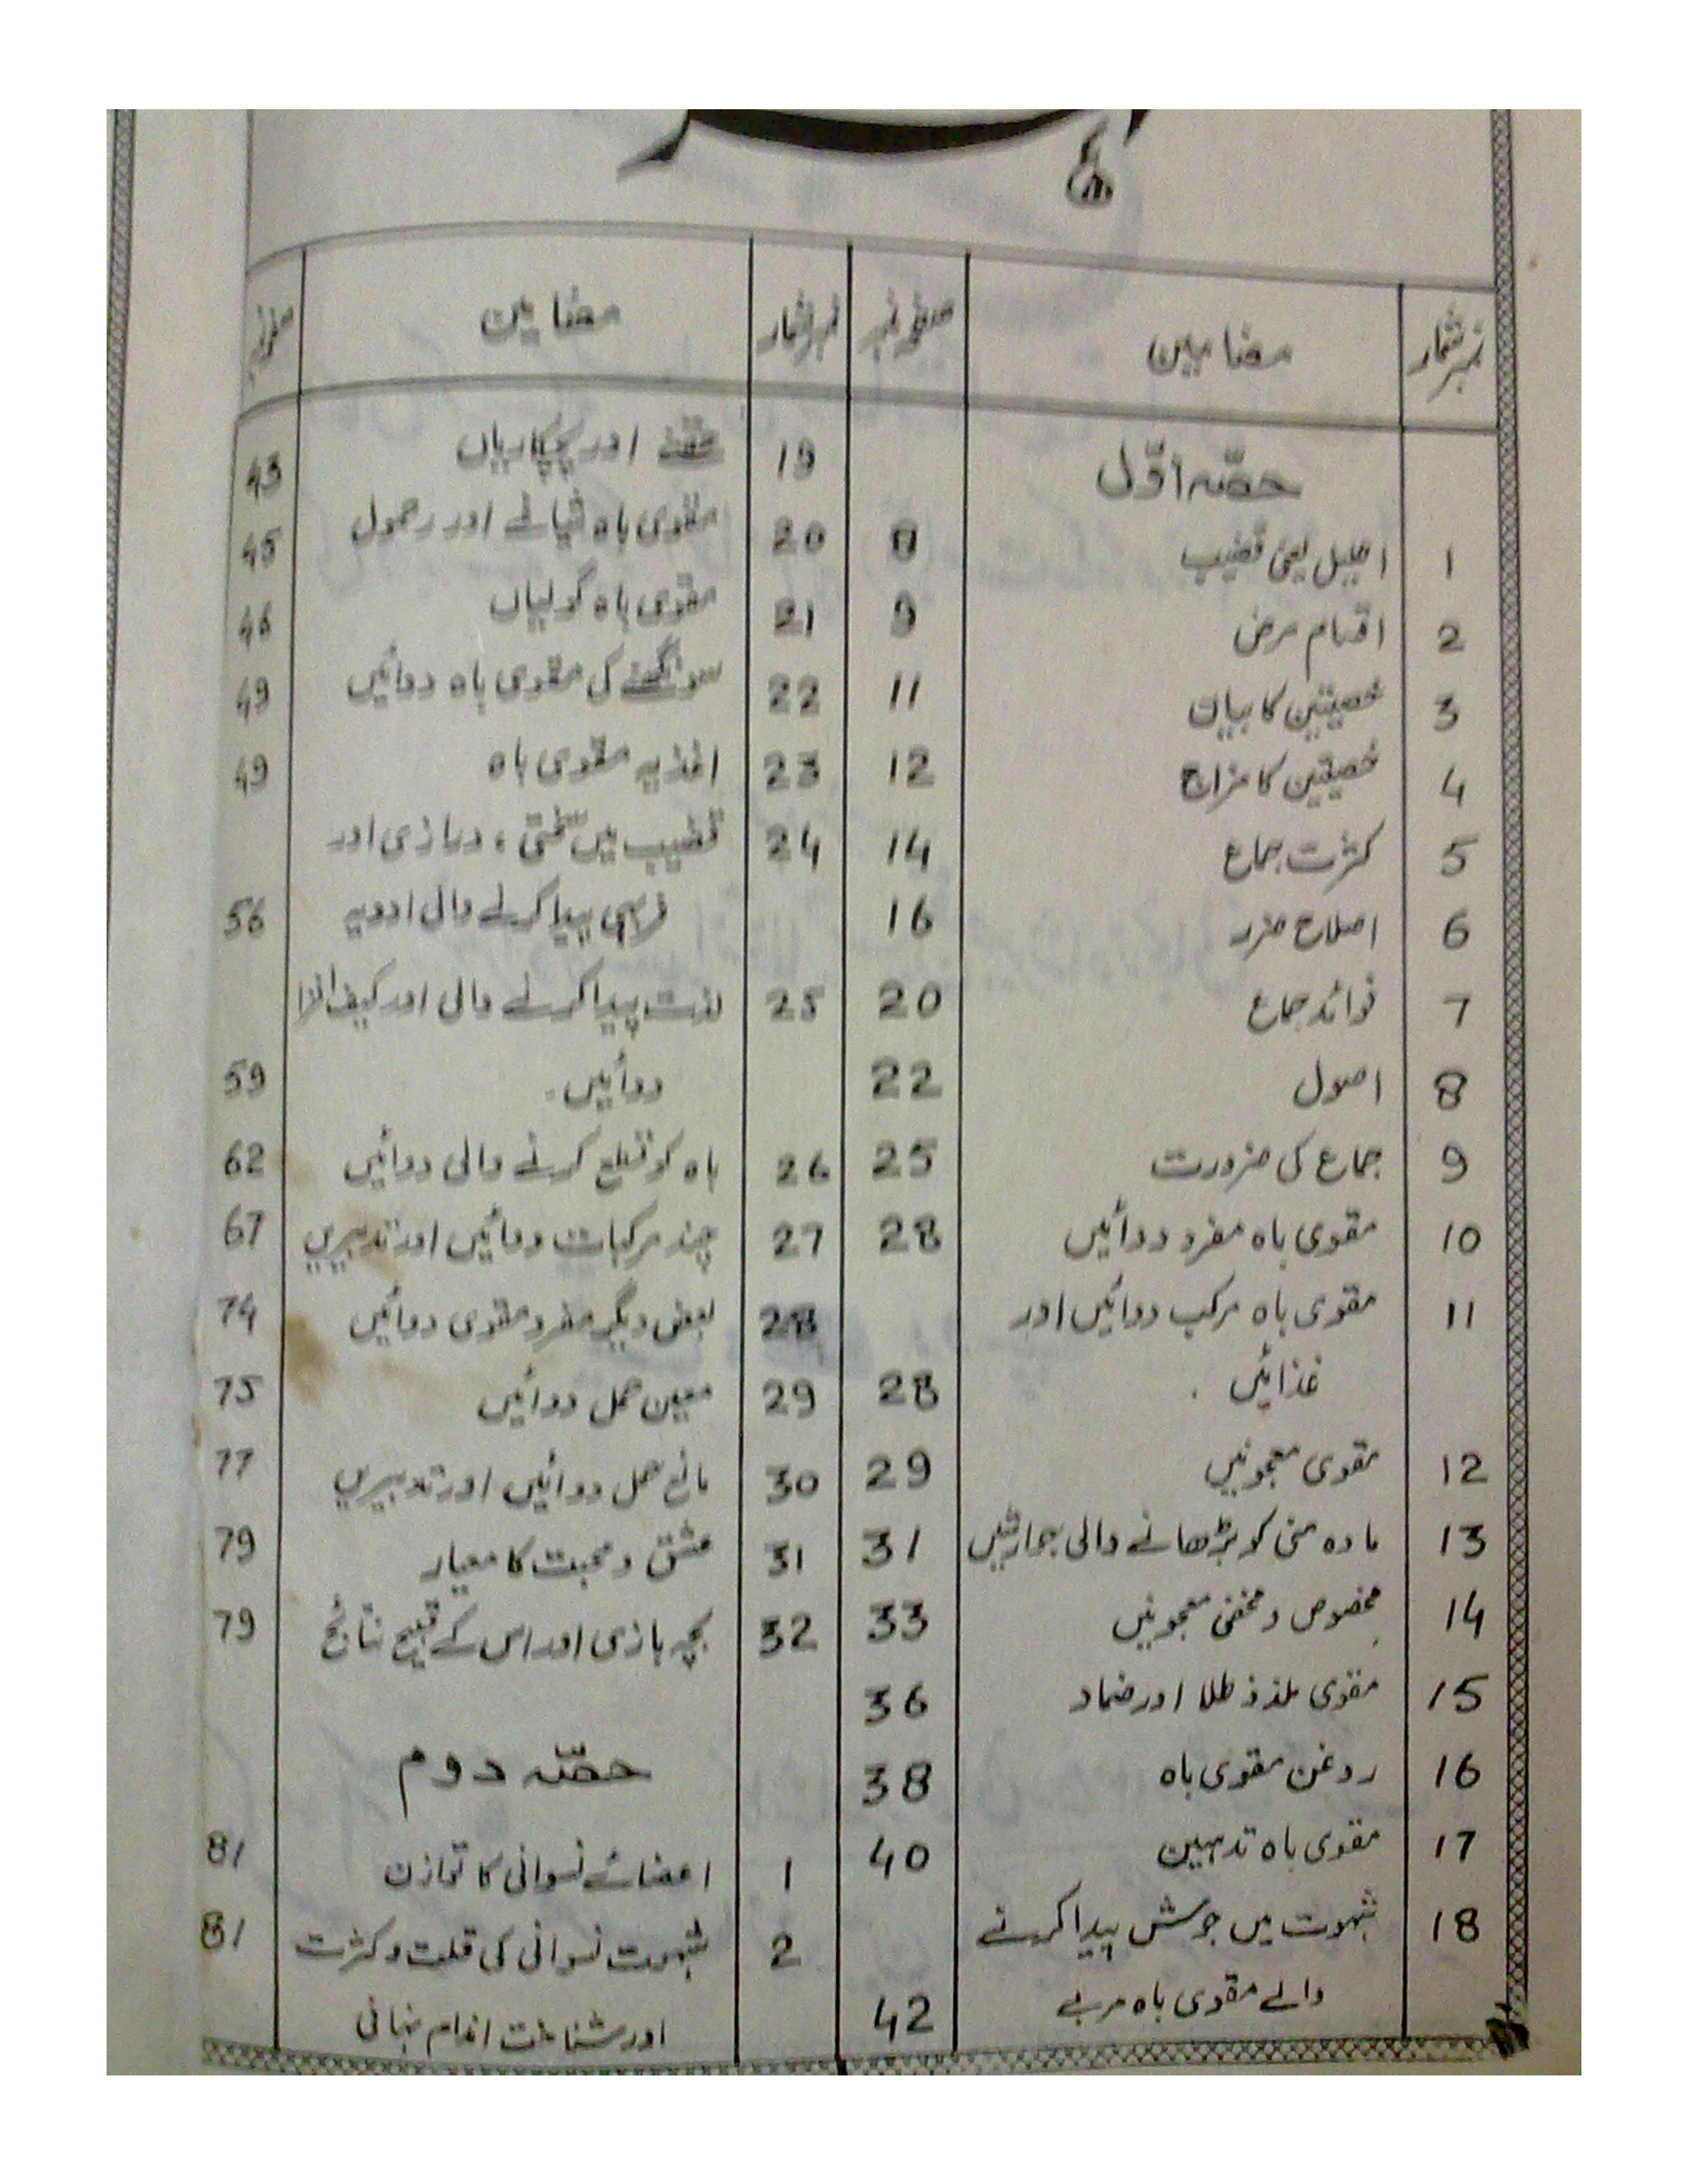 نمبر شمار مضامین صفحہ نمبر
حصّہ اوّل
1 احلیل یعنی قضیب 8
2 اقسام مرض 9
3 خصیتین کا بیان 11
4 خصیتین کا مزاج 12
5 کثرت جماع 14
6 اصلاح ضرر 16
7 فوائد جماع 20
8 اصول 22
9 جماع کی ضرورت 25
10 مقوی باہ مفرد دوائیں 28
11 مقوی باہ مرکب دوائیں اور
غذائیں . 28
12 مقوی معجونیں 29
13 مادہ منی کو بڑھانے والی جوارشیں 31
14 مخصوص و مخفی معجونیں 33
15 مقوی ملذذ طلا اور ضماد 36
16 روغن مقوی باہ 38
17 مقوی باہ تدہین 40
18 شہوت میں جوش پیدا کرنے
والے مقوی باہ مربے 42
نمبر شمار مضامین صفحہ نمبر
19 حقنے اور پچکاریاں 43
20 مقوی باہ شیافے اور حمول 45
21 مقوی باہ گولیاں 46
22 سونگھنے کی مقوی باہ دوائیں 49
23 اغذیہ مقوی باہ 49
24 قضیب میں سختی ، درازی اور
فربہی پیدا کرنے والی ادویہ 56
25 لذت پیدا کرنے والی اور کیف افزا
دوائیں . 59
26 باہ کو قطع کرنے والی دوائیں 62
27 چند مرکبات دوائیں اور تدبیریں 67
28 بعض دیگر مفرد مقوی دوائیں 74
29 معین حمل دوائیں 75
30 مانع حمل دوائیں اور تدبیریں 77
31 عشق و محبت کا معیار 79
32 بچہ بازی اور اس کے قبیح نتائج 79
حصّہ دوم
1 اعضائے نسوانی کا توازن 81
2 شہوت نسوانی کی قلت و کثرت 81
اور شناخت اندام نہانی